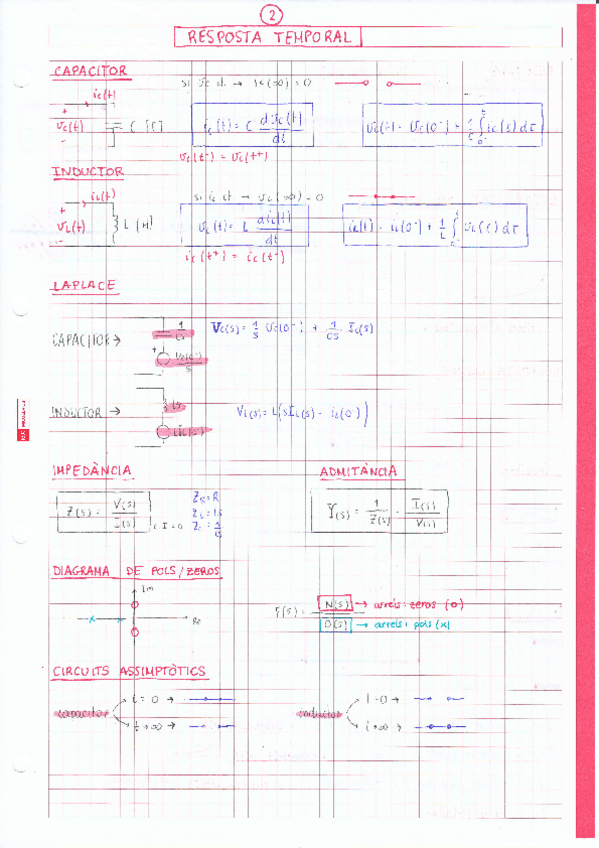 2
RESPOSTA TEMPORAL
CAPACITOR
si vc ct. → ic(∞) = 0
ic(t)
+
vc(t)
-
C [F]
ic(t) = C dvc(t)/dt
vc(t) = vc(0⁻) + 1/C ∫ ic(s) dτ
vc(t⁻) = vc(t⁺)
INDUCTOR
si iL ct → vL(∞) = 0
iL(t)
+
vL(t)
-
L (H)
vL(t) = L diL(t)/dt
iL(t) = iL(0⁻) + 1/L ∫ vL(τ) dτ
LAPLACE
CAPACITOR →
1/Cs
+
Vc(0⁻)/s
Vc(s) = 1/s Vc(0⁻) + 1/Cs Ic(s)
INDUCTOR →
Ls
LiL(0⁻)
VL(s) = L(sIL(s) - iL(0⁻))
IMPEDÀNCIA
ADMITÀNCIA
Z(s) = V(s)/I(s)
C.I=0
ZR=R
ZL=Ls
Zc=1/Cs
Y(s) = 1/Z(s) = I(s)/V(s)
DIAGRAMA DE POLS/ZEROS
Im
Re
F(s) = N(s)/D(s)
N(s) → arrels: zeros (o)
D(s) → arrels: pols (x)
CIRCUITS ASSIMPTÒTICS
capacitor
t=0 →
t→∞ →
inductor
t=0 →
t→∞ →